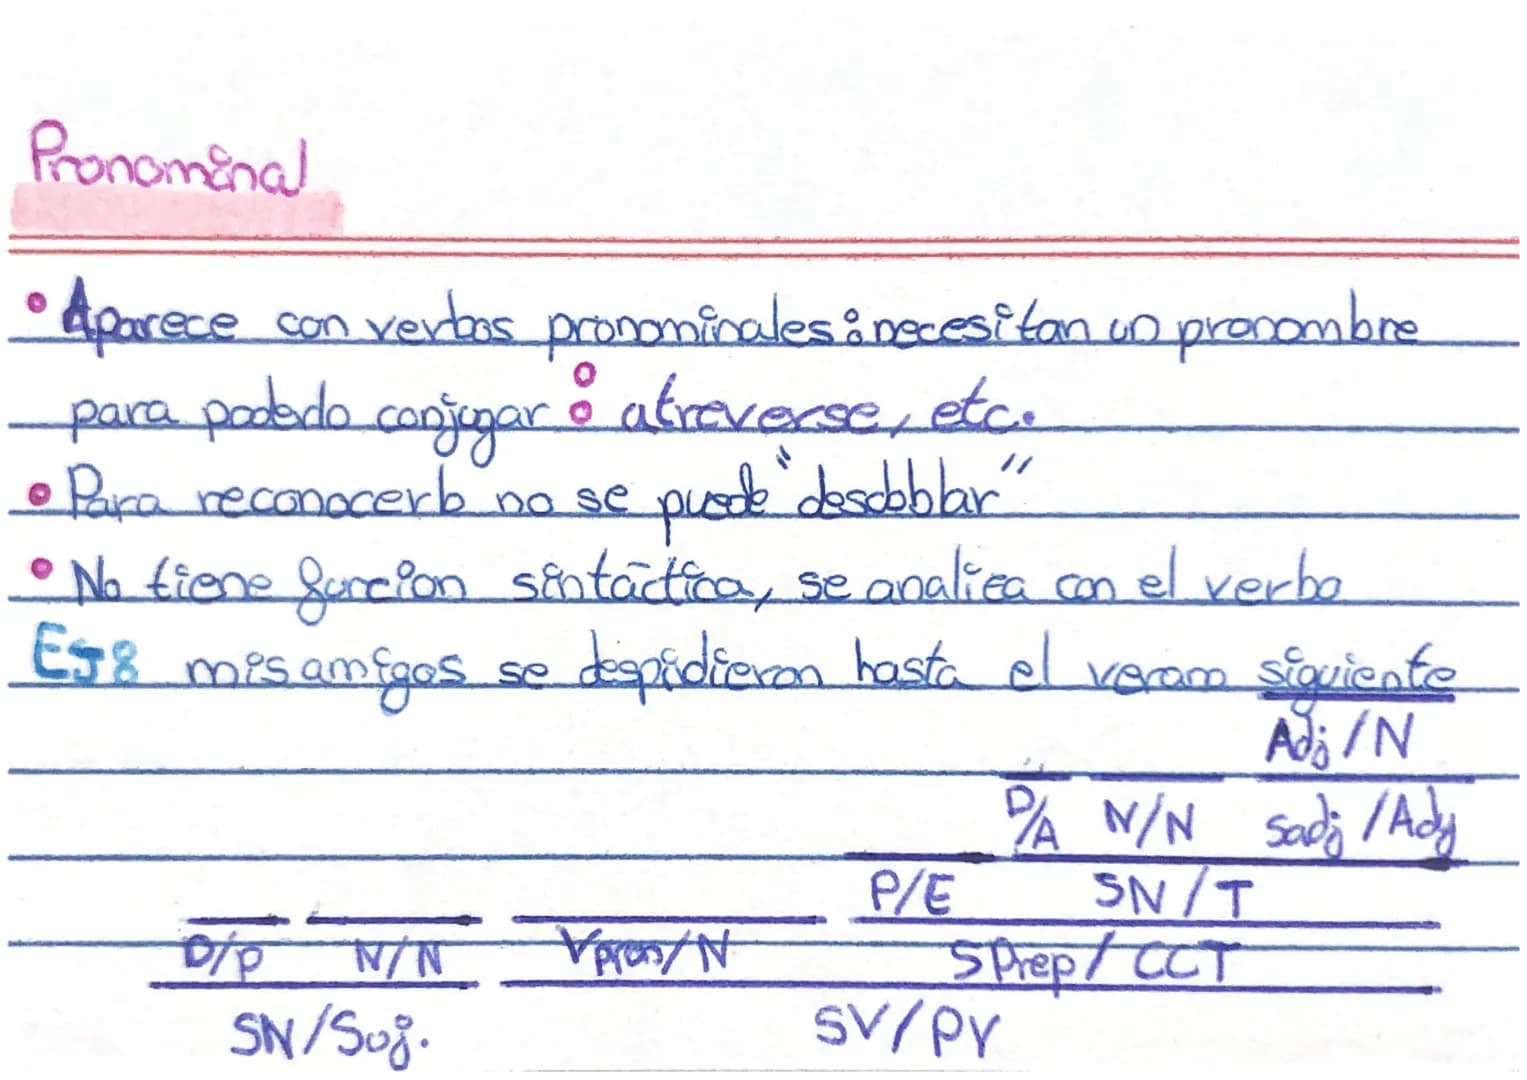 Pronominal
• Aparece con verbos pronominales: necesitan un pronombre
para poderlo conjugar: atreverse, etc.
• Para reconocerlo no se puede "desdoblar"
• No tiene funcion sintáctica, se analiza con el verbo
EJ: mis amigos se despidieron hasta el verano siguiente
Adj/N
D/A N/N Sadj/Ady
P/E SN/T
D/P N/N Vpron/N SPrep/CCT
SN/Suj. SV/PV